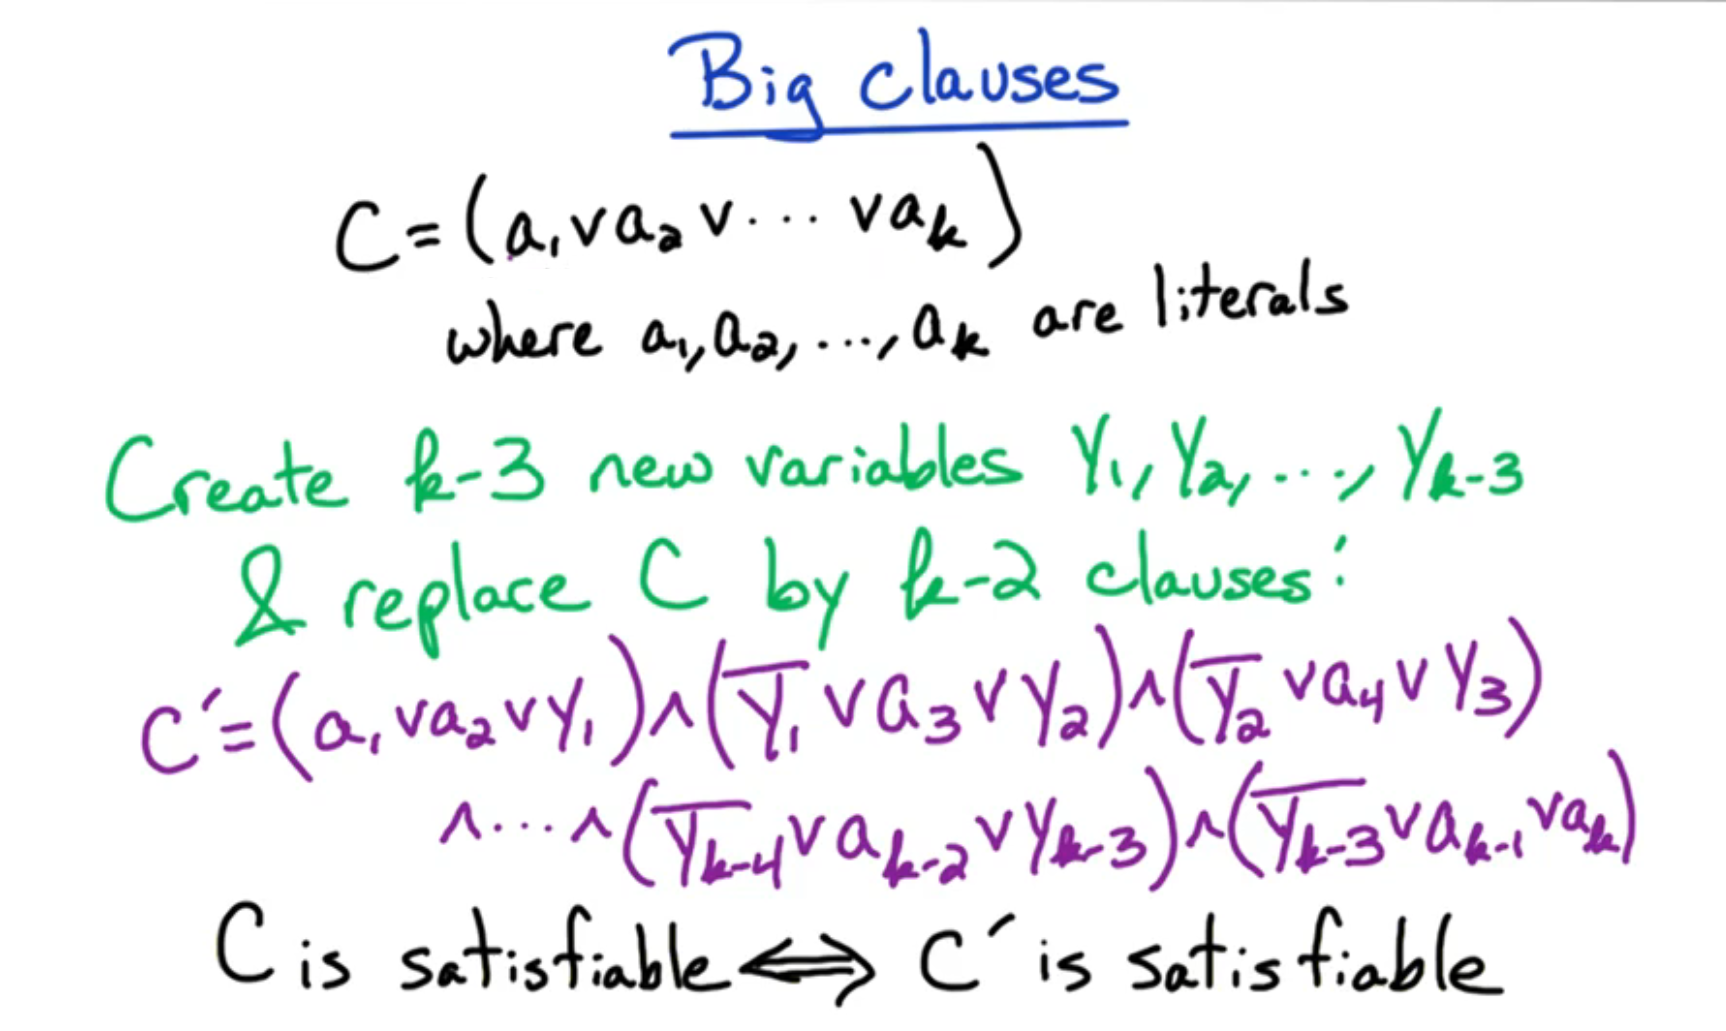 Big clauses
C = (a₁ ∨ a₂ ∨ ... ∨ aₖ)
where a₁, a₂, ..., aₖ are literals
Create k-3 new variables Y₁, Y₂, ..., Yₖ₋₃
& replace C by k-2 clauses:
C′ = (a₁ ∨ a₂ ∨ Y₁) ∧ (Y̅₁ ∨ a₃ ∨ Y₂) ∧ (Y̅₂ ∨ a₄ ∨ Y₃)
∧ ... ∧ (Y̅ₖ₋₄ ∨ aₖ₋₂ ∨ Yₖ₋₃) ∧ (Y̅ₖ₋₃ ∨ aₖ₋₁ ∨ aₖ)
C is satisfiable ⟺ C′ is satisfiable